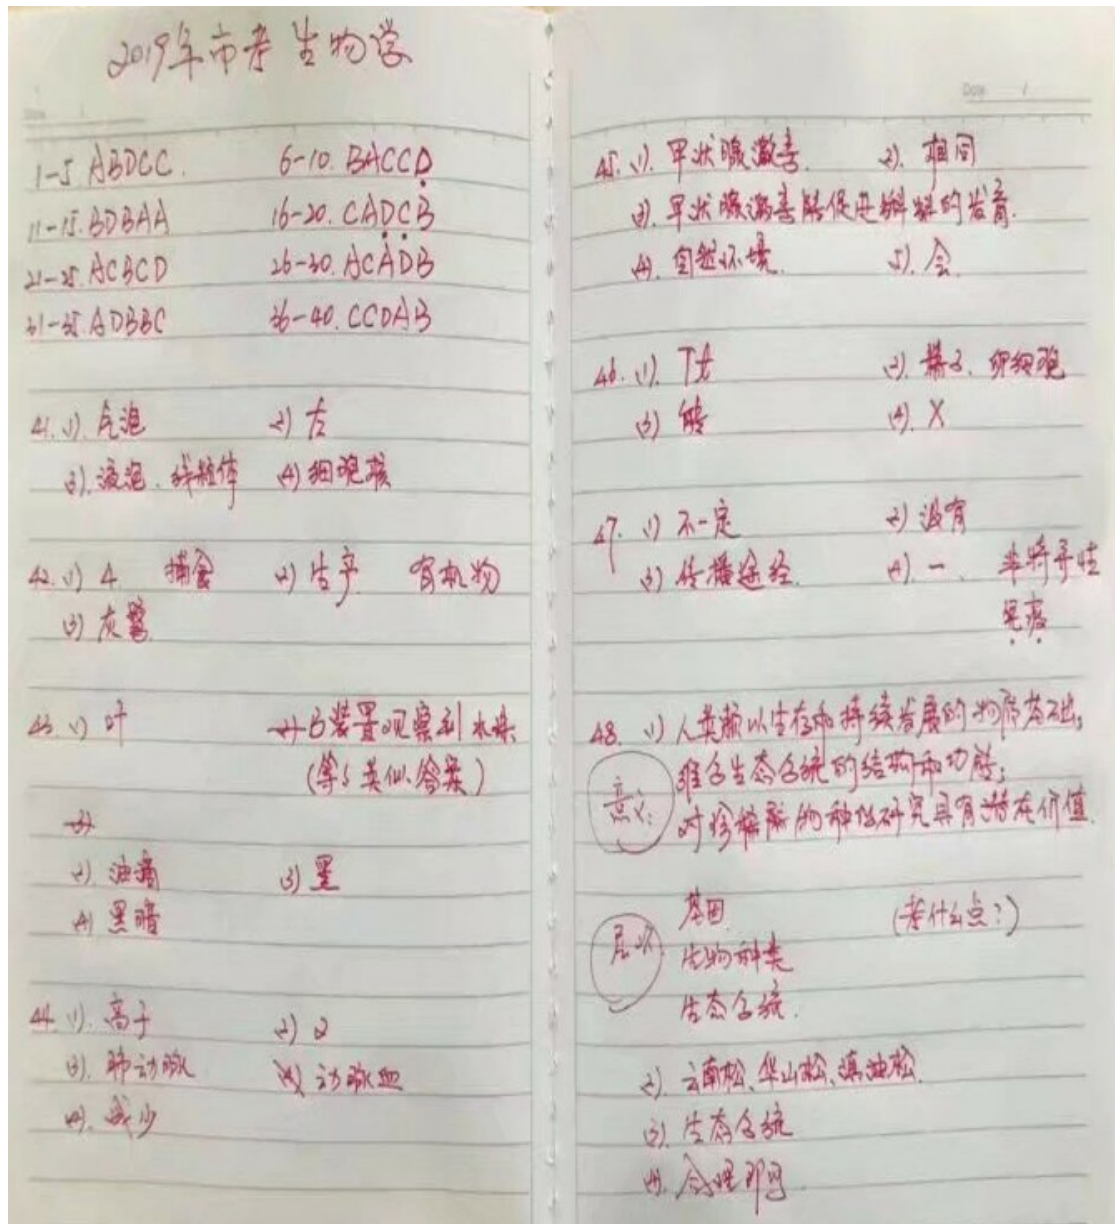 2019年市考 生物学
1-5 ABDCC. 6-10. BACCD
11-15. BDBAA 16-20. CADCB
21-25. ACBCD 26-30. ACADB
31-35. ADBBC 36-40. CCDAB
41. (1). 气泡 (2) 左
(3). 液泡、线粒体 (4) 细胞核
42. (1) 4 捕食 (2) 生产 有机物
(3) 灰鹭
43. (1) 叶 B装置观察到水珠
(等与类似答案)
(2)
(2). 油滴 (3) 蓝
(4) 黑暗
44. (1). 高于 (2) 2
(3). 肺动脉 动脉血
(4). 减少
Date /
45. (1). 甲状腺激素. (2). 相同
(3). 甲状腺激素能促进蝌蚪的发育.
(4). 自然环境. (5). 会.
46. (1). Tt (2). 精子、卵细胞
(3) 能 (4). X
47. (1) 不一定 (2) 没有
(3) 传播途径. (4). 一、 非特异性
免疫
48. (1) 人类赖以生存和持续发展的物质基础;
维系生态系统的结构和功能;
意义:
对珍稀 物种的研究具有潜在价值.
基因 (考什么点?)
层次
生物种类
生态系统.
(2). 云南松、华山松、滇油松.
(3). 生态系统
(4). 合理即可.